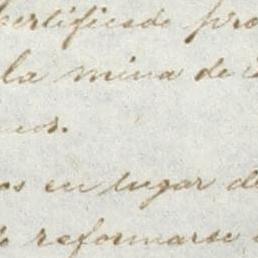 certificado pro
la mina de
en lugar de
reformarse